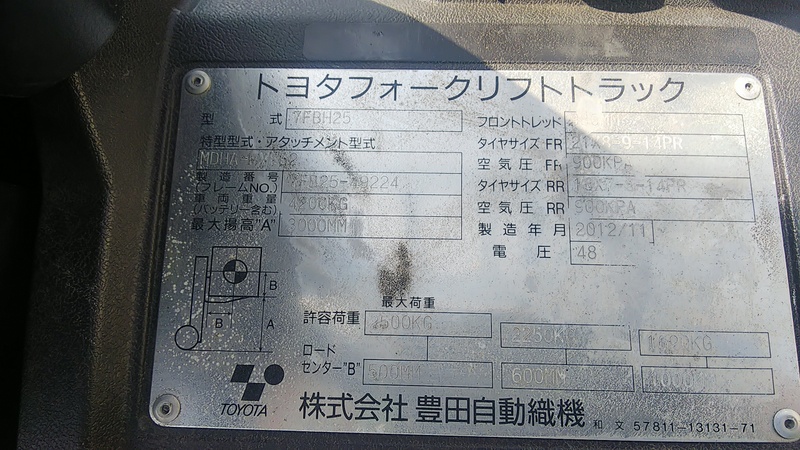 トヨタフォークリフトトラック
型 式 7FBH25
フロントトレッド
特型型式・アタッチメント型式
タイヤサイズ FR 21X8-9-14PR
空気圧 FR 900KPA
製造番号
(フレームNO.)
タイヤサイズ RR
車両重量
(バッテリー含む)
空気圧 RR 900KPA
最大揚高"A" 3000MM
製造年月 2012/11
電圧 48
B
B
A
最大荷重
許容荷重 2500KG 2250K
ロード
センター"B" 500MM 600MM
TOYOTA
株式会社 豊田自動織機
和文 57811-13131-71